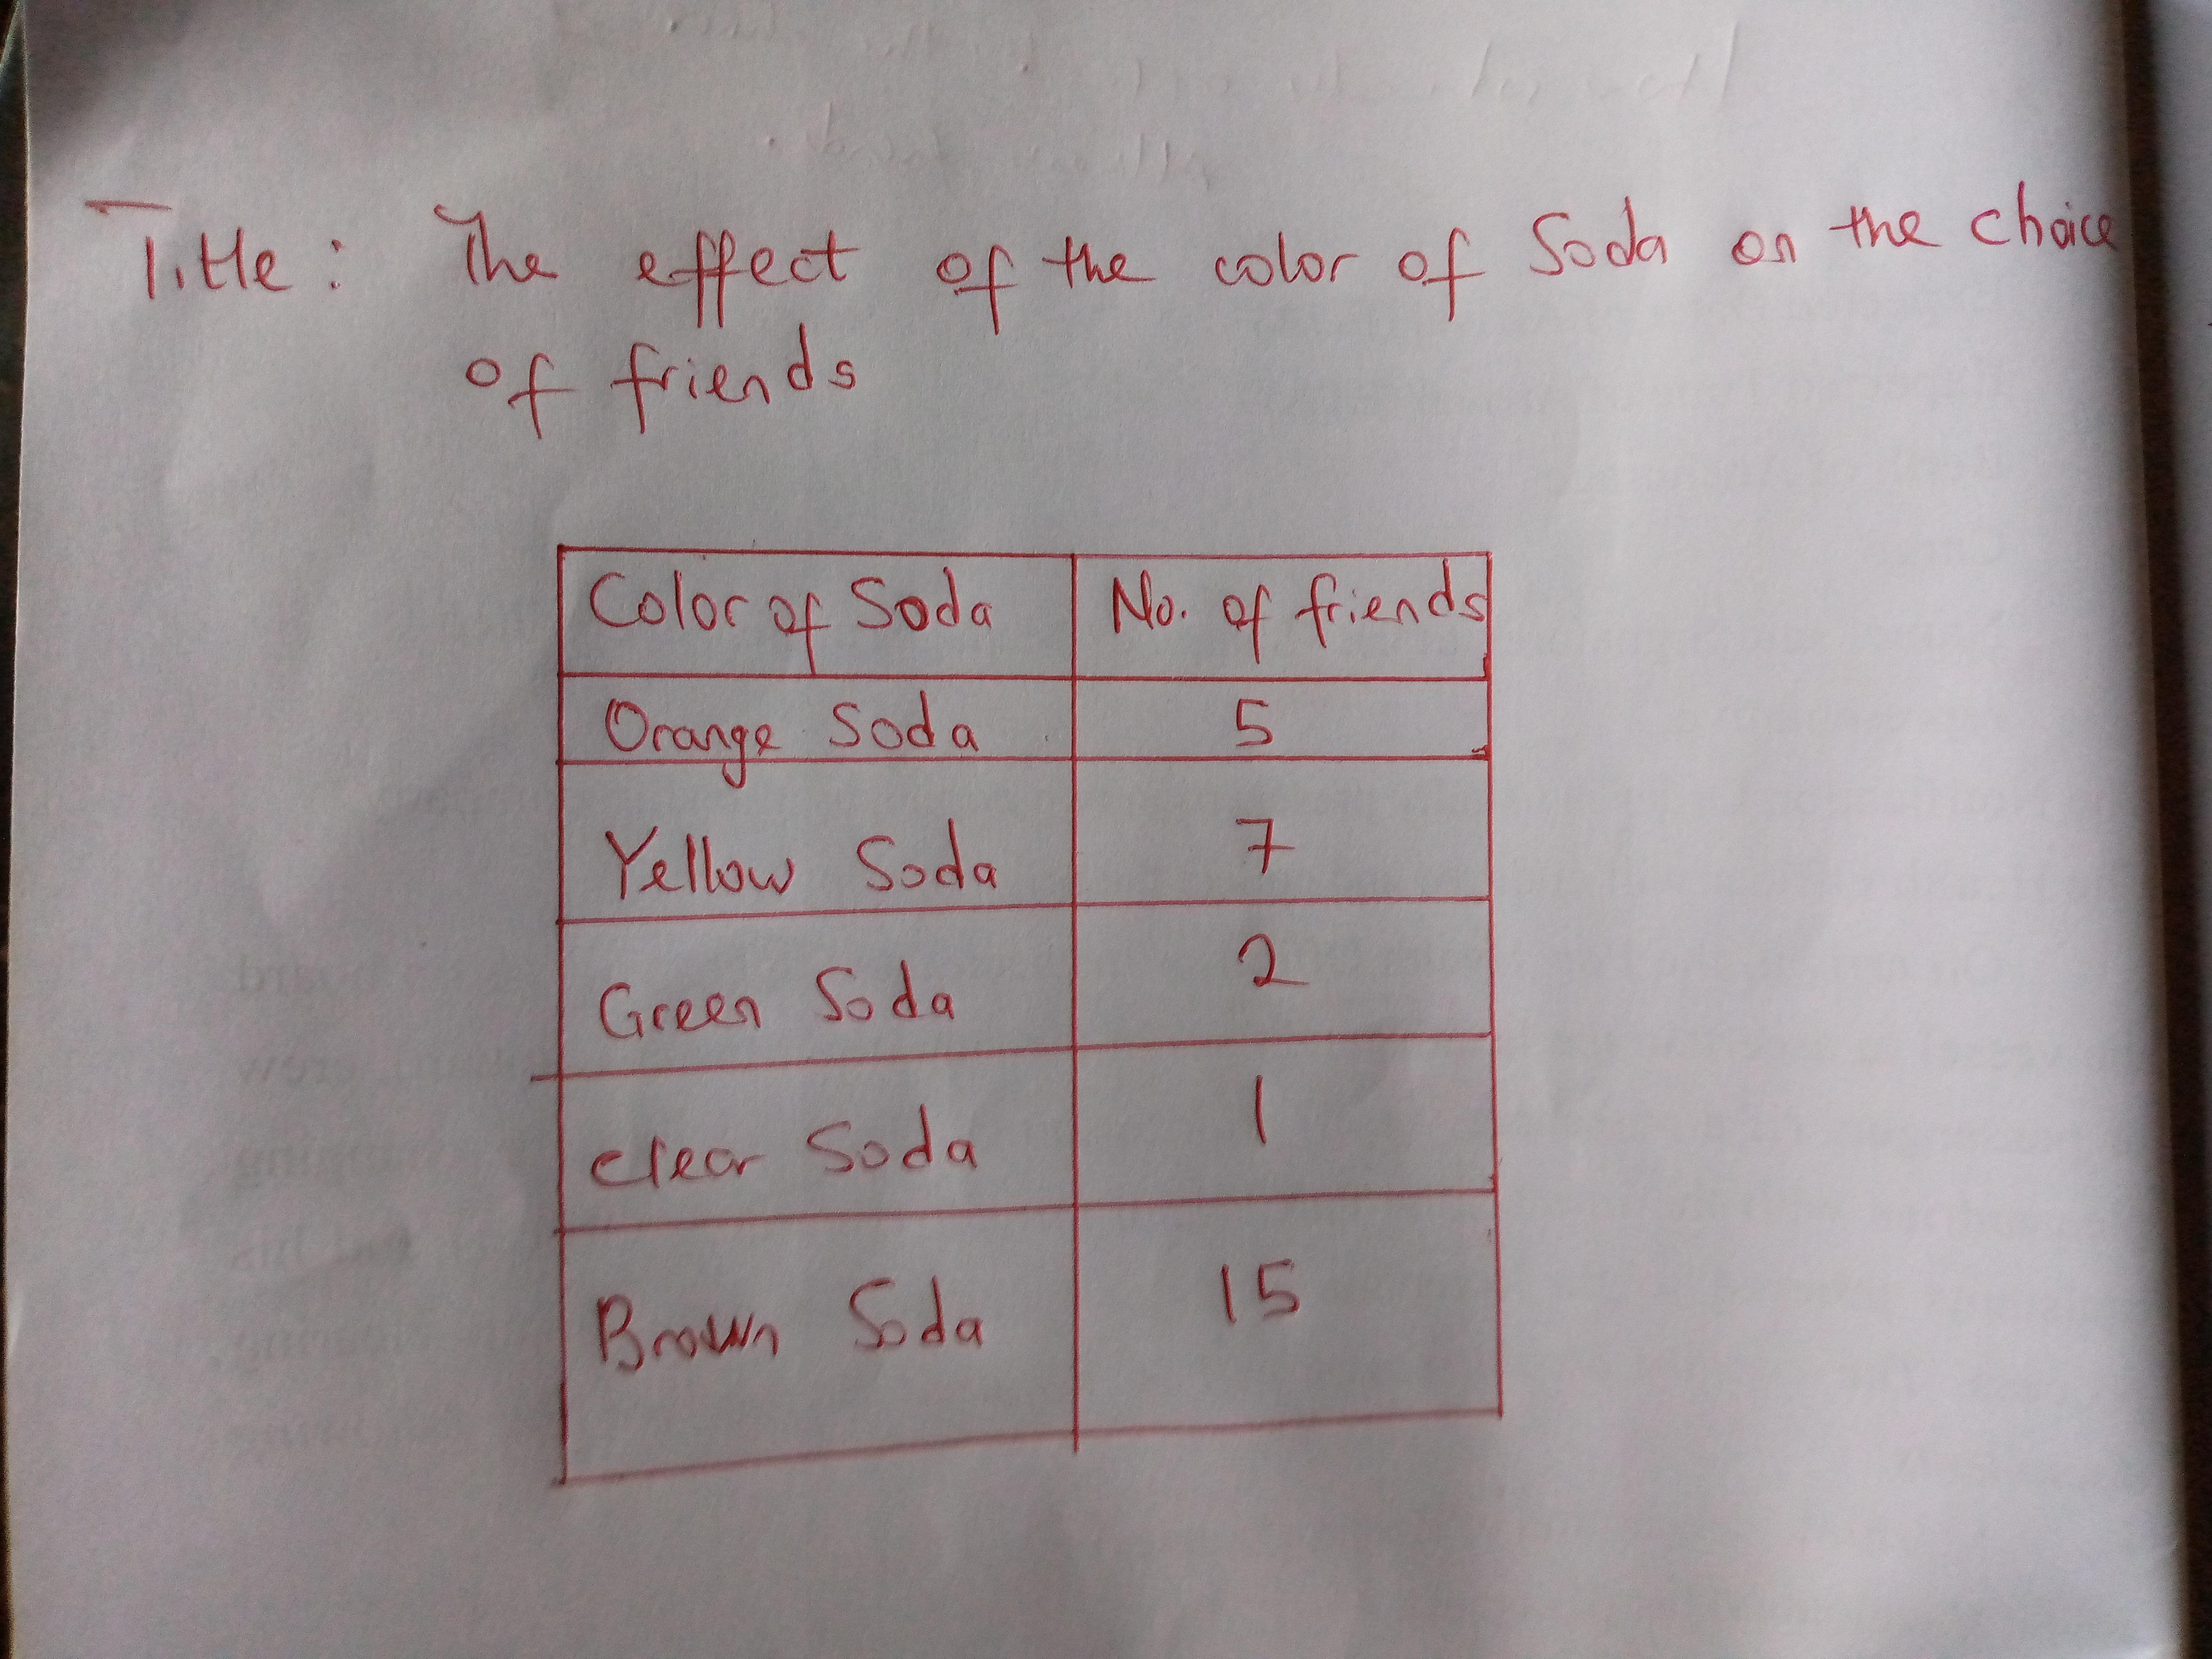 Title: The effect of the color of Soda on the choice
of friends
Color of Soda No. of friends
Orange Soda 5
Yellow Soda 7
Green Soda 2
clear Soda 1
Brown Soda 15